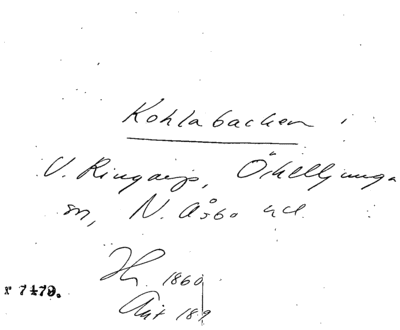 Kohlabacken
V. Ringarp, Örkelljunga
sn, N. Åsbo hd.
1860
r 7479.